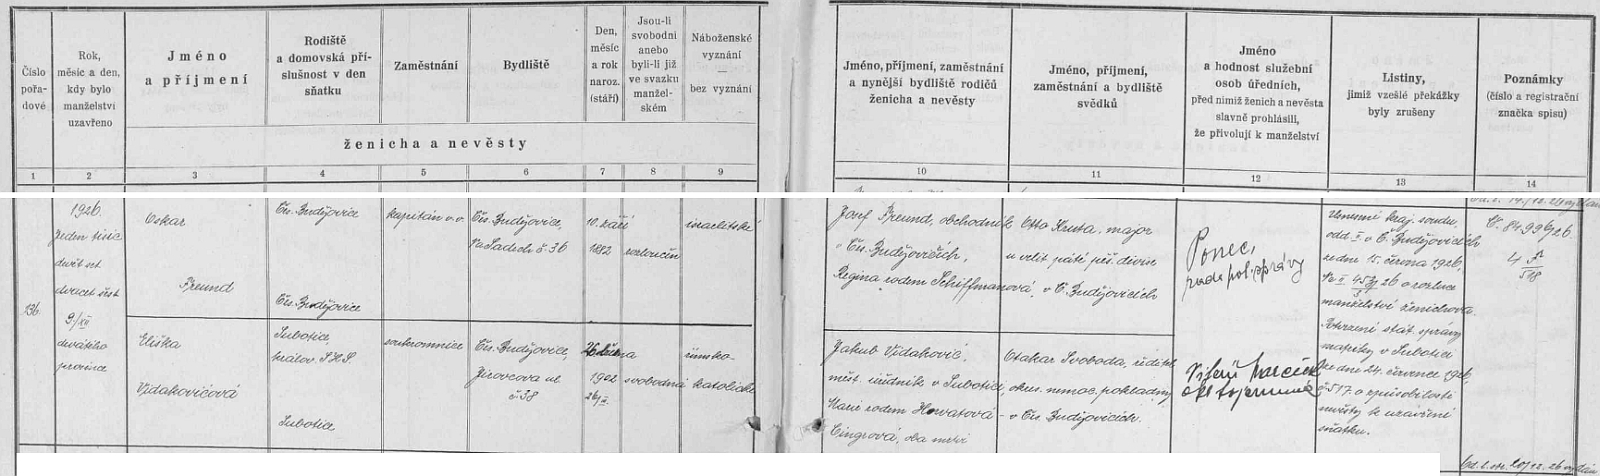 Číslo
pořa-
dové
Rok,
měsíc a den,
kdy bylo
manželství
uzavřeno
Jméno
a příjmení
Rodiště
a domovská pří-
slušnost v den
sňatku
Zaměstnání
Bydliště
Den,
měsíc
a rok
naroz.
(stáří)
Jsou-li
svobodni
anebo
byli-li již
ve svazku
manžel-
ském
Náboženské
vyznání
—
bez vyznání
ženicha a nevěsty
Jméno, příjmení, zaměstnání
a nynější bydliště rodičů
ženicha a nevěsty
Jméno, příjmení,
zaměstnání a bydliště
svědků
Jméno
a hodnost služební
osob úředních,
před nimiž ženich a nevěsta
slavně prohlásili,
že přivolují k manželství
Listiny,
jimiž vzešlé překážky
byly zrušeny
Poznámky
(číslo a registrační
značka spisu)
1 2 3 4 5 6 7 8 9 10 11 12 13 14
136.
1926.
Jeden tisíc
devět set
dvacet šest
9./XII
devátého
prosince
Oskar
Freund
Čes. Budějovice
Čes. Budějovice
kapitán v.v.
Čes. Budějovice,
Na Sadech č. 36
10. září
1882
rozloučen
israelitské
Josef Freund, obchodník
v Čes. Budějovicích,
Regina rodem Schiffmanová,
Otto Kruta, major
u velit. páté pěš. divise
v Č. Budějovicích
Ponec,
rada pol. správy
Usnesení kraj. soudu,
odd. I. v Č. Budějovicích
ze dne 15. června 1926,
o rozluce
manželství ženichova.
Potvrzení stát. správy
matriky v Subotici
ze dne 24. července 1926,
č. 517. o způsobilosti
nevěsty k uzavření
sňatku.
Č. 84.996/26.
4
518
Eliška
Vidakovičová
Subotice,
králov. S.H.S.
Subotice
soukromnice
Čes. Budějovice,
Jírovcova ul.
č. 58
26
1902
svobodná
římsko-
katolické
Jakub Vidakovič,
měst. úředník v Subotici,
Marie rodem Horvatová-
Cingrová, oba mrtví
Otakar Svoboda, ředitel
okres. nemoc. pokladny
v Čes. Budějovicích.